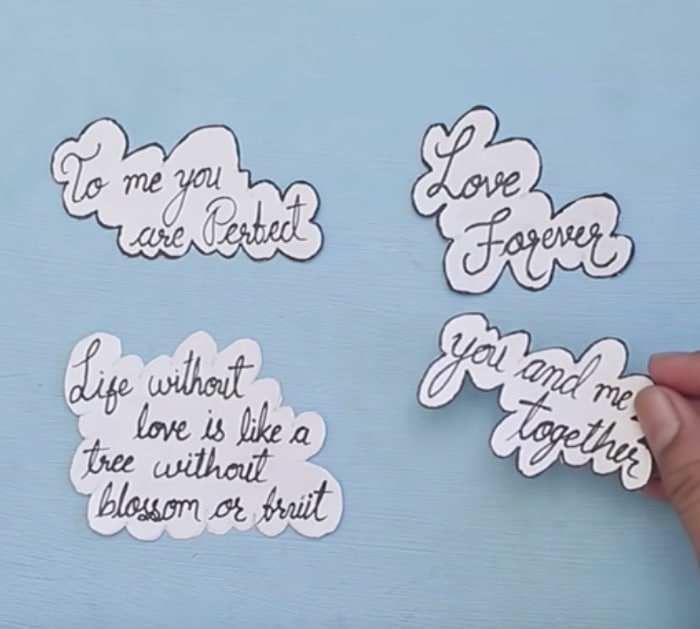 To me you
are Perfect
Love
Forever
Life without
love is like a
tree without
blossom or fruit
you and me
together